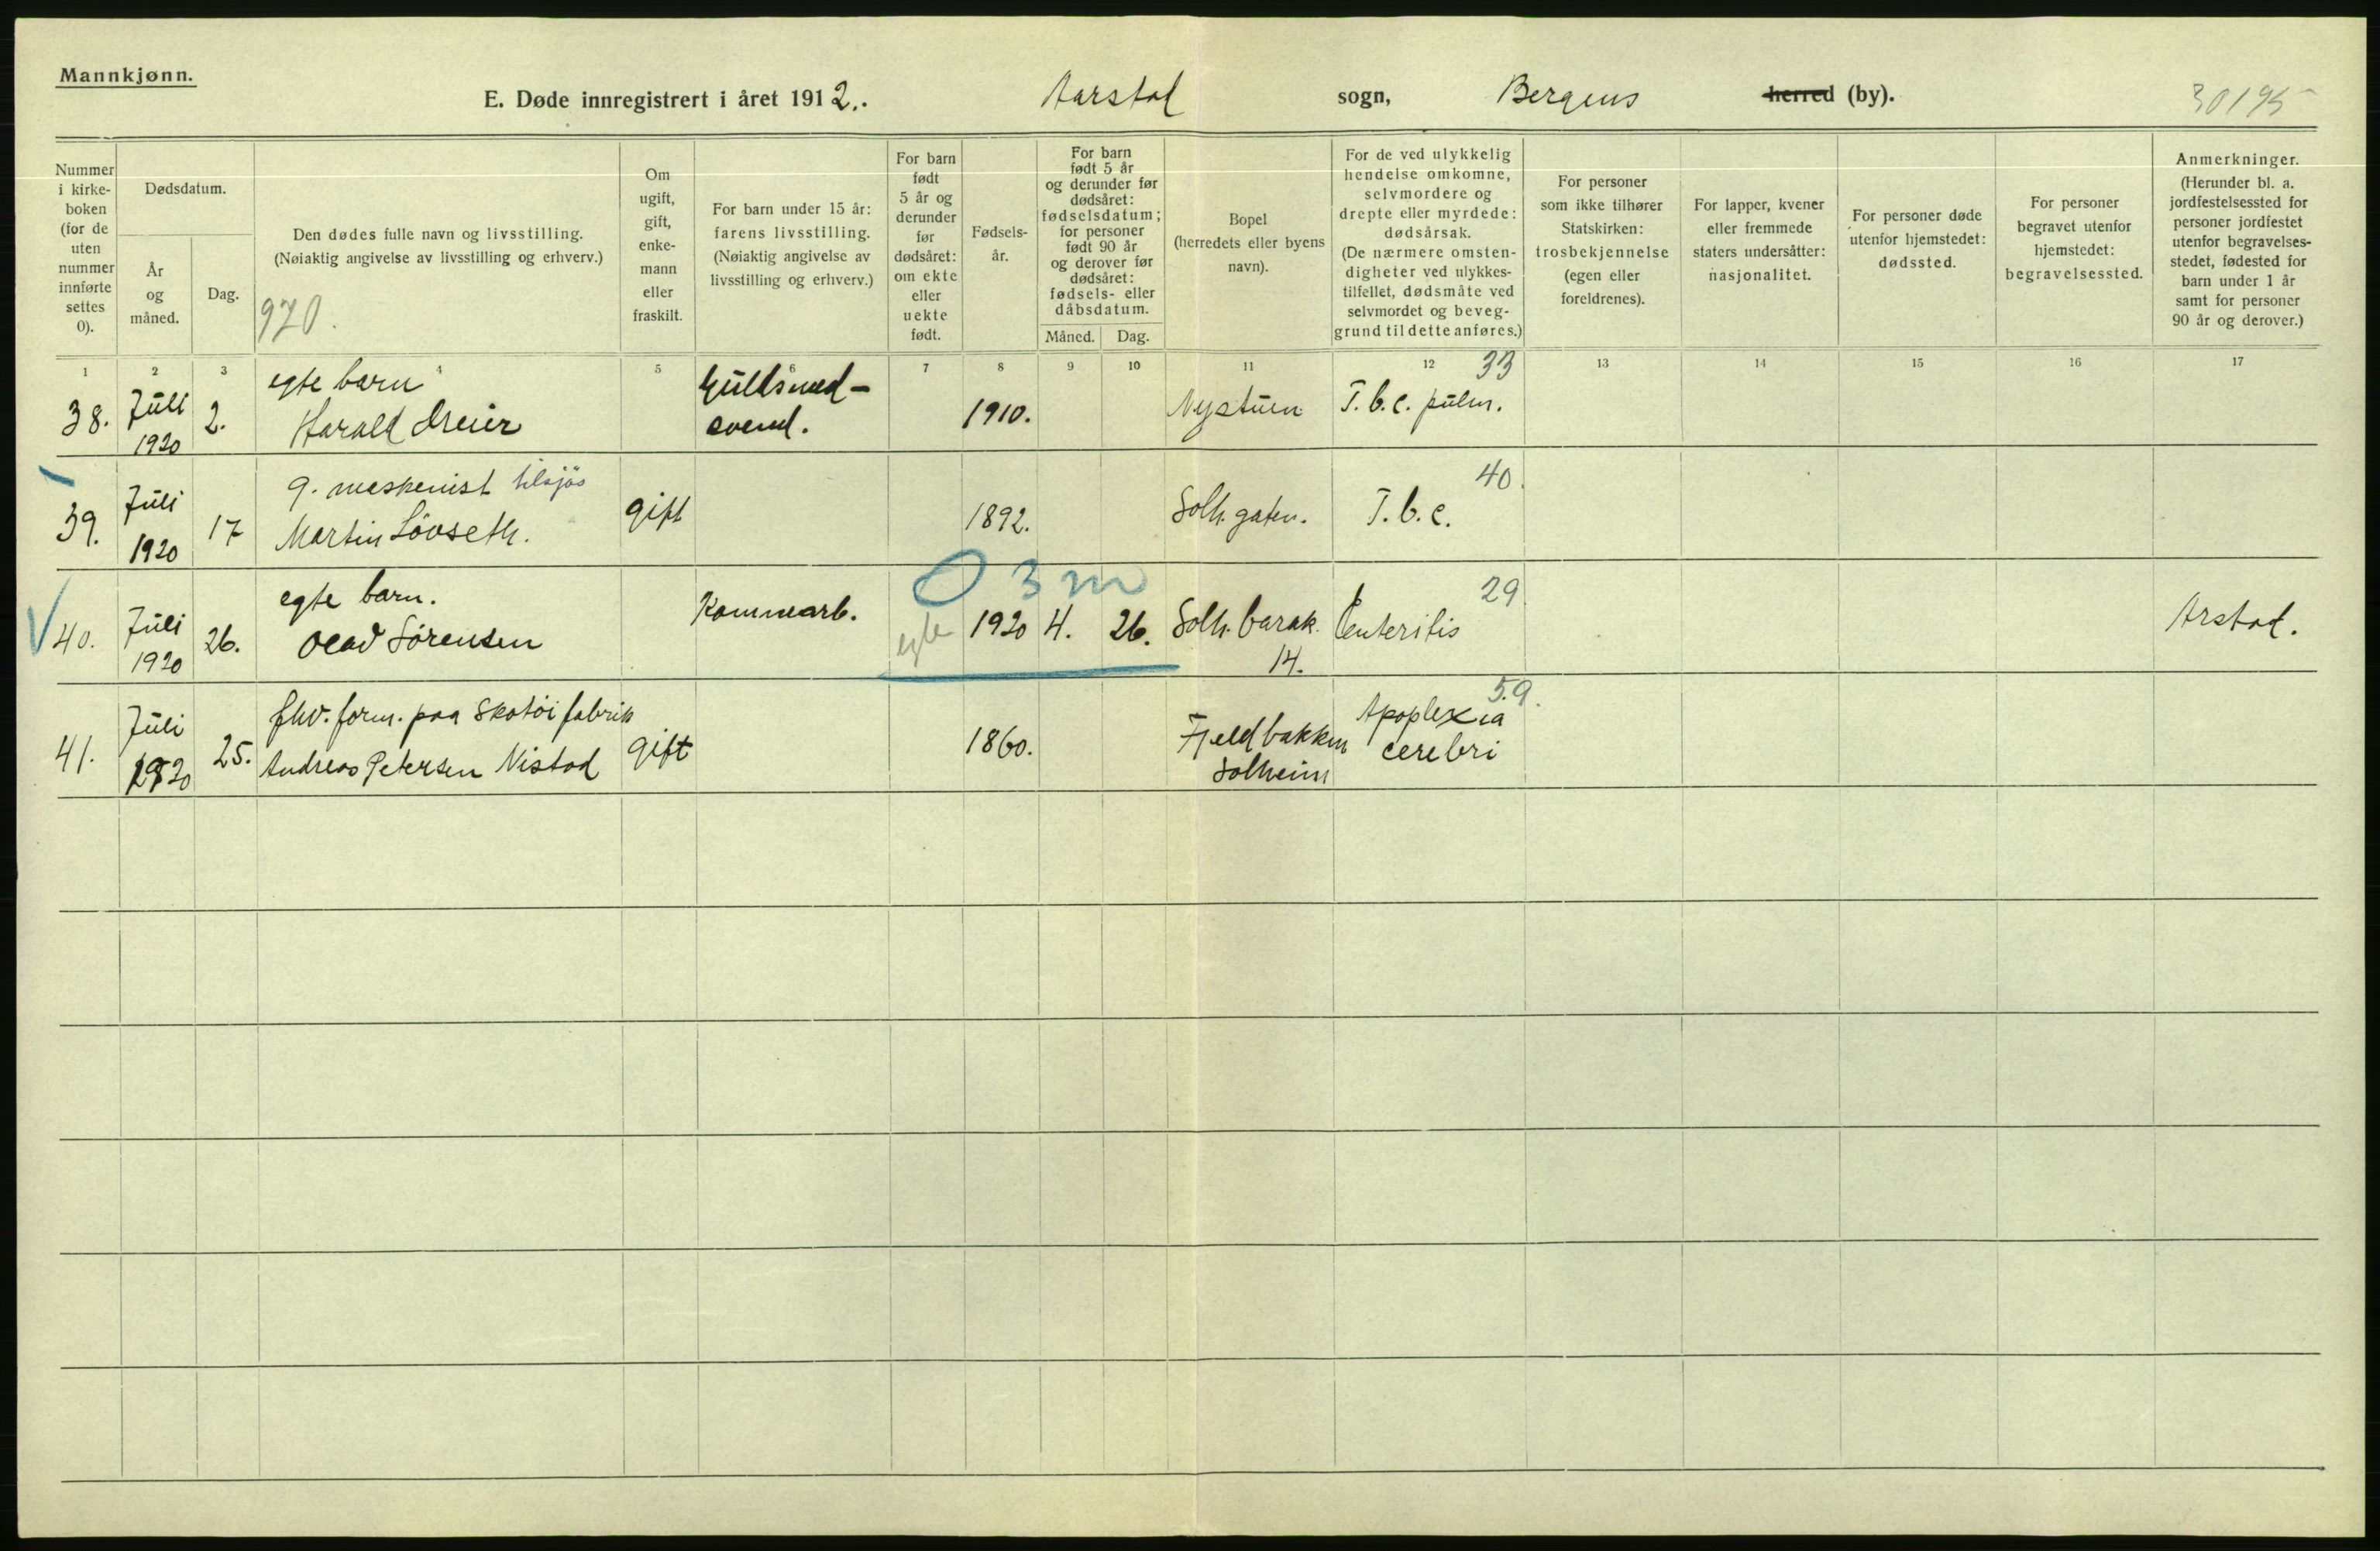 Mannkjønn.
E. Døde innregistrert i året 1912.. Aarstad sogn, Bergens herred (by). 30195
Nummer i kirke-boken (for de uten nummer innførte settes 0).
Dødsdatum.
År og måned.
Dag.
Den dødes fulle navn og livsstilling.
(Nøiaktig angivelse av livsstilling og erhverv.)
920.
Om ugift, gift, enke-mann eller fraskilt.
For barn under 15 år: farens livsstilling.
(Nøiaktig angivelse av livsstilling og erhverv.)
For barn født 5 år og derunder før dødsåret: om ekte eller uekte født.
Fødsels-år.
For barn født 5 år og derunder før dødsåret: fødselsdatum; for personer født 90 år og derover før dødsåret: fødsels- eller dåbsdatum.
Måned. Dag.
Bopel (herredets eller byens navn).
For de ved ulykkelig hendelse omkomne, selvmordere og drepte eller myrdede: dødsårsak.
(De nærmere omsten-digheter ved ulykkes-tilfellet, dødsmåte ved selvmordet og beveg-grund til dette anføres.)
For personer som ikke tilhører Statskirken: trosbekjennelse (egen eller foreldrenes).
For lapper, kvener eller fremmede staters undersåtter: nasjonalitet.
For personer døde utenfor hjemstedet: dødssted.
For personer begravet utenfor hjemstedet: begravelsessted.
Anmerkninger.
(Herunder bl. a. jordfestelsessted for personer jordfestet utenfor begravelses-stedet, fødested for barn under 1 år samt for personer 90 år og derover.)
1 2 3 4 5 6 7 8 9 10 11 12 13 14 15 16 17
33
38. Juli 1920 2. egte barn Harald Dreier Gullsmed-svend. 1910. Nystuen T.b.c. pulm.
40.
39. Juli 1920 17 g. maskenist tilsjös Martin Lövseth. gift 1892. Solh. gaten. T.b.c.
0 3 m
29
40. Juli 1920 26. egte barn. Olav Sörensen Kommearb. egte 1920 4. 26. Solh. barak. 14. Enteritis Arstad.
59.
41. Juli 1920 25. fhv. form. paa Skotöifabrik Andreas Petersen Nistad gift 1860. Fjeldbakken Solheim Apoplexia cerebri